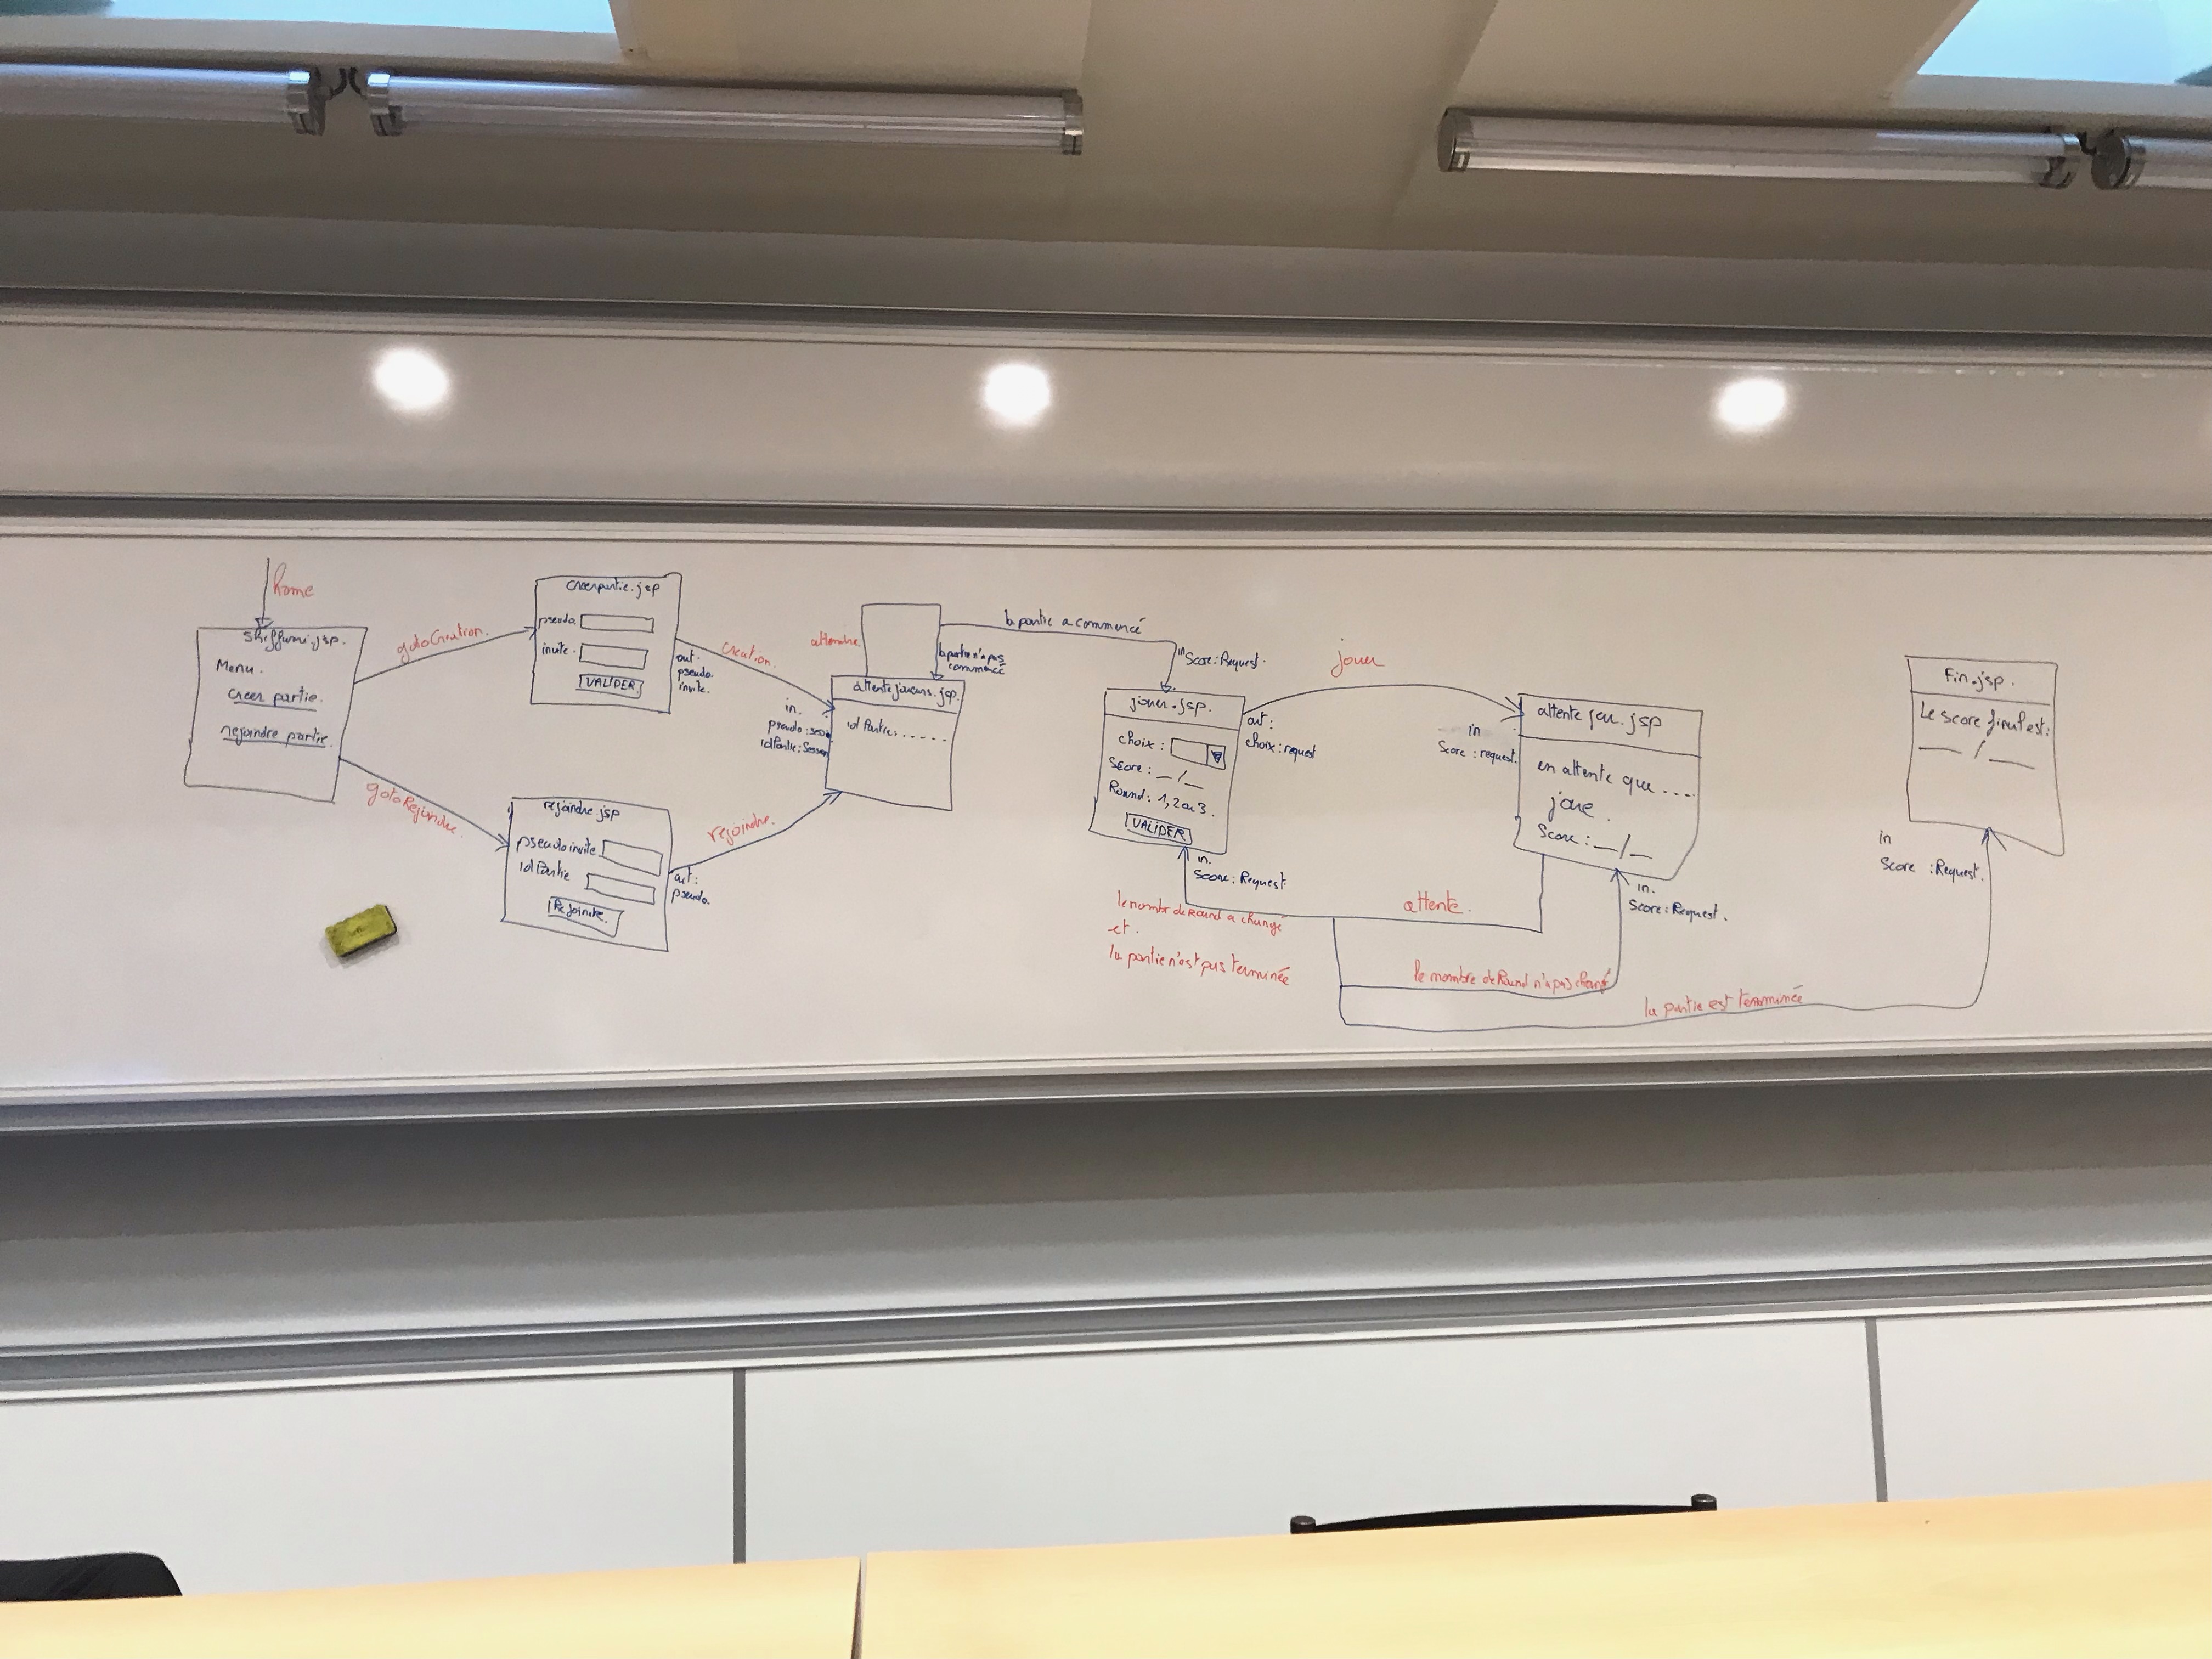 home
shiffumi.jsp.
Menu.
creer partie.
rejoindre partie.
gotoCreation.
gotoRejoindre.
creerpartie.jsp
pseudo.
invite.
VALIDER
out.
pseudo.
invite.
creation.
rejoindre.jsp
pseudo invite
idPartie
Rejoindre.
out:
pseudo.
rejoindre.
in.
pseudo: sess
idPartie: Session
attendre
la partie n'a pas
commencé
attente joueurs.jsp.
idPartie: .....
la partie a commencé
in
Score: Request.
jouer.jsp.
choix:
Score: _/_
Round: 1, 2 ou 3.
VALIDER
out:
choix: request
jouer
in
Score: request.
attente jeu.jsp
en attente que ....
joue.
Score: _/_
in.
Score: Request
attente.
le nombre de Round a changé
et.
la partie n'est pas terminée
in.
Score: Request.
le nombre de Round n'a pas changé
la partie est terminée
Fin.jsp.
Le score final est:
__ / __
in
Score: Request.